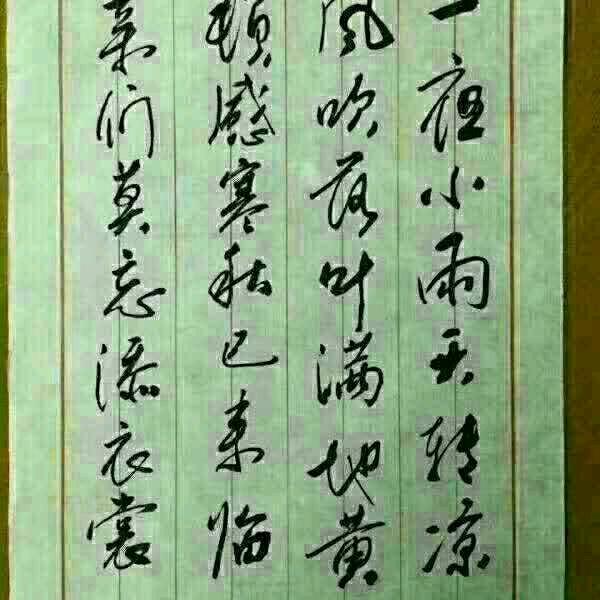 一夜小雨天转凉
风吹落叶满地黄
顿感寒秋已来临
亲们莫忘添衣裳